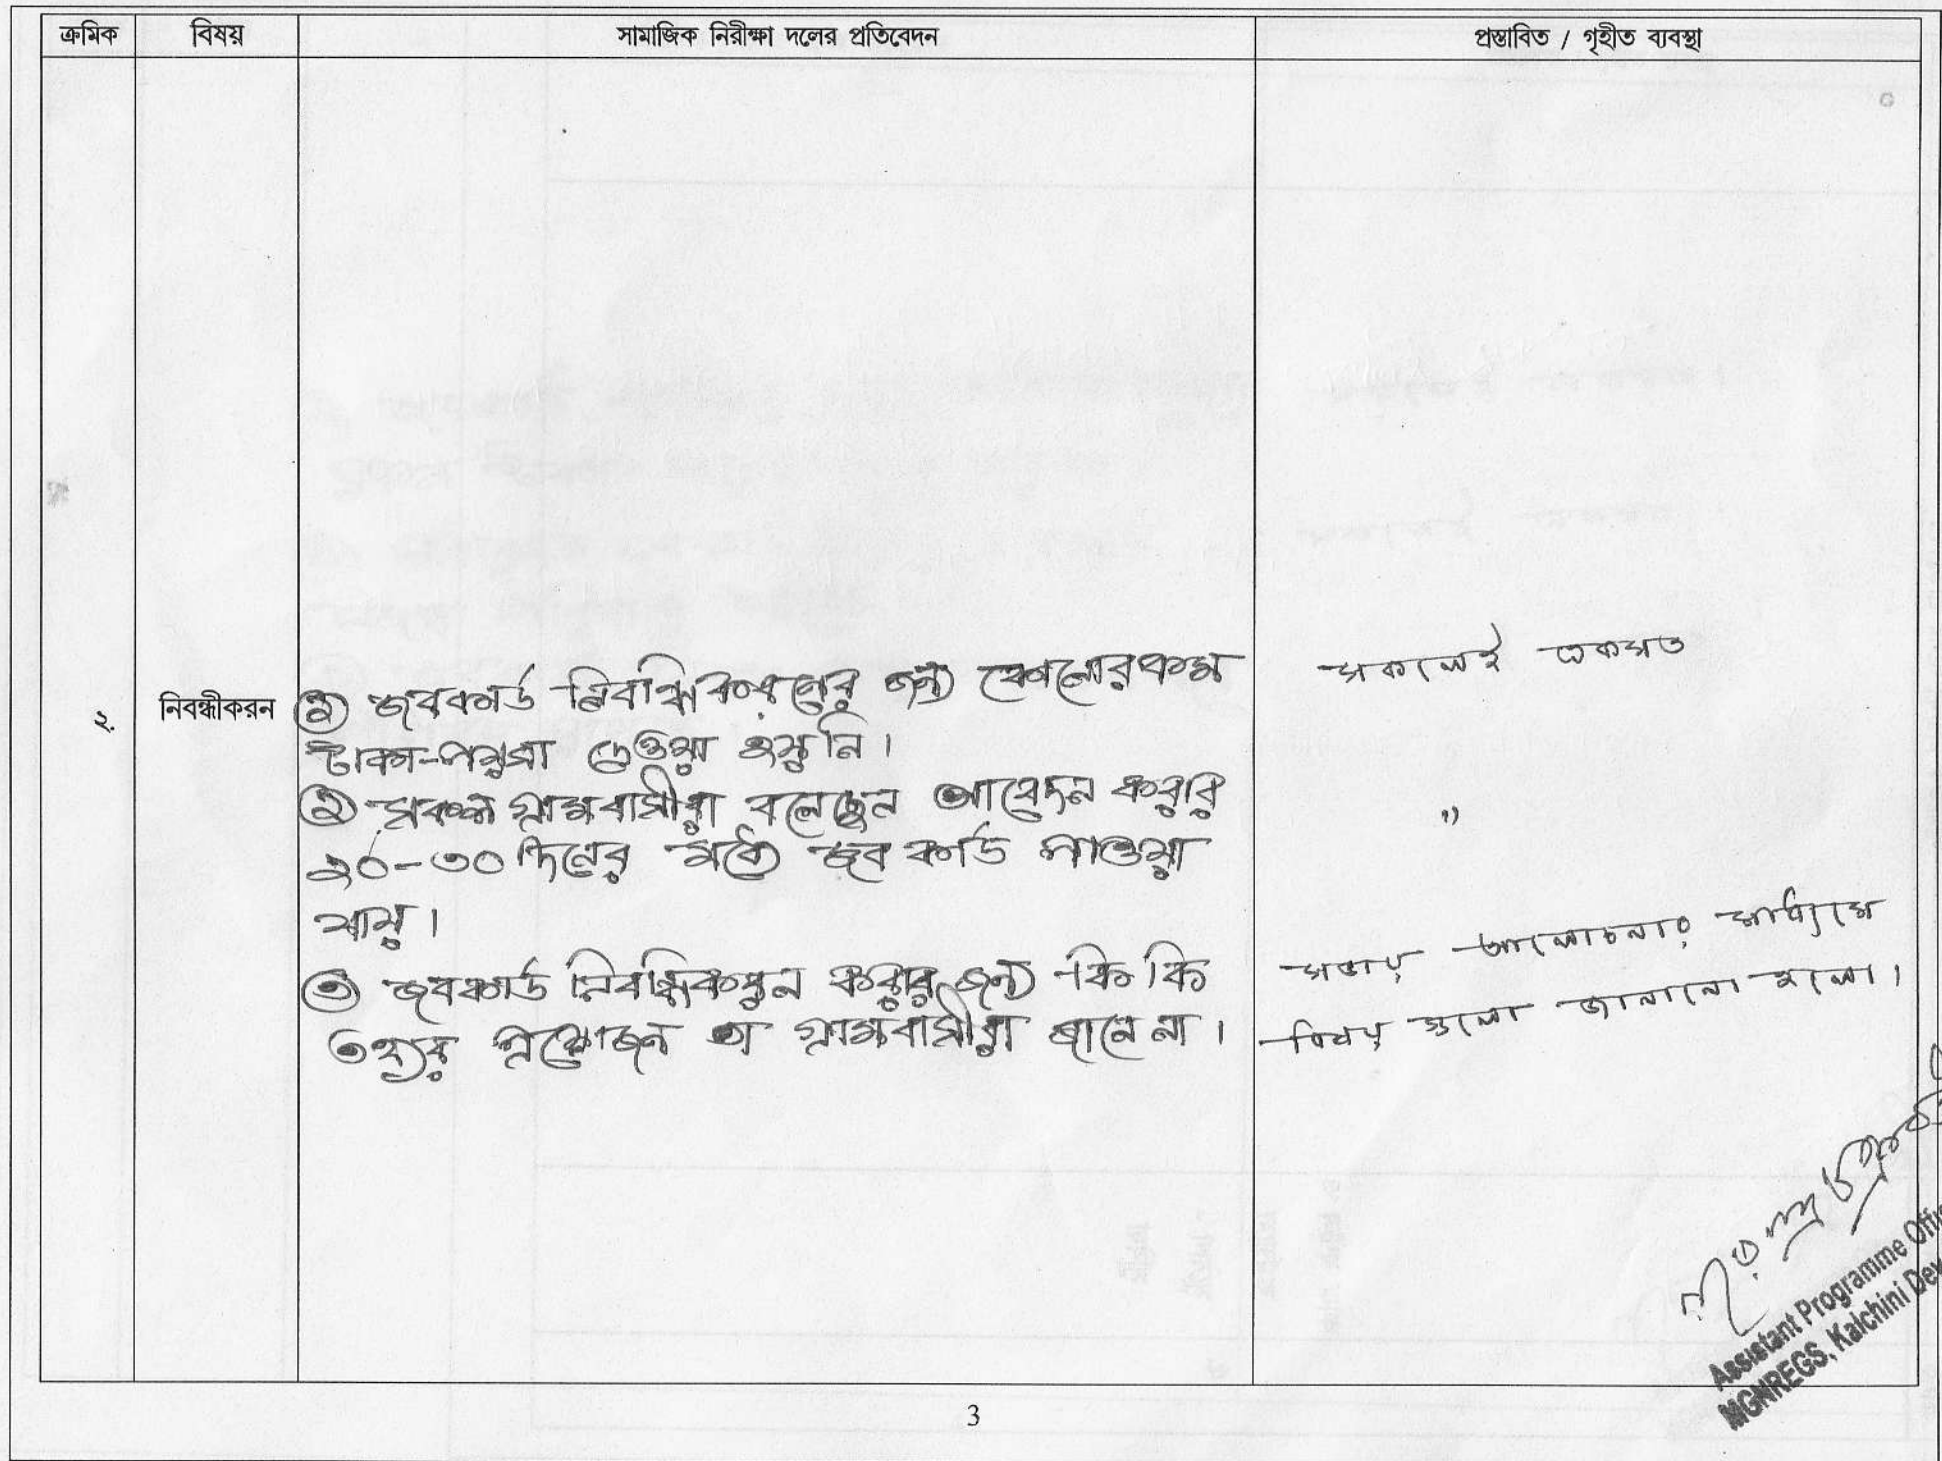 ক্রমিক বিষয় সামাজিক নিরীক্ষা দলের প্রতিবেদন প্রস্তাবিত / গৃহীত ব্যবস্থা
২. নিবন্ধীকরন
① জবকার্ড নিবন্ধিকরনের জন্য কোনোরকম
টাকা-পয়সা দেওয়া হয়নি।
② সকল গ্রামবাসীরা বলেছেন আবেদন করার
২০-৩০ দিনের মধ্যে জব কার্ড পাওয়া
যায়।
③ জবকার্ড নিবন্ধিকরন করার জন্য কি কি
তথ্যর প্রয়োজন তা গ্রামবাসীরা জানে না।
সকলেই একমত
"
সভায় আলোচনার মাধ্যমে
বিষয় গুলো জানানো হলো।
Assistant Programme
MGNREGS, Kalchini
3